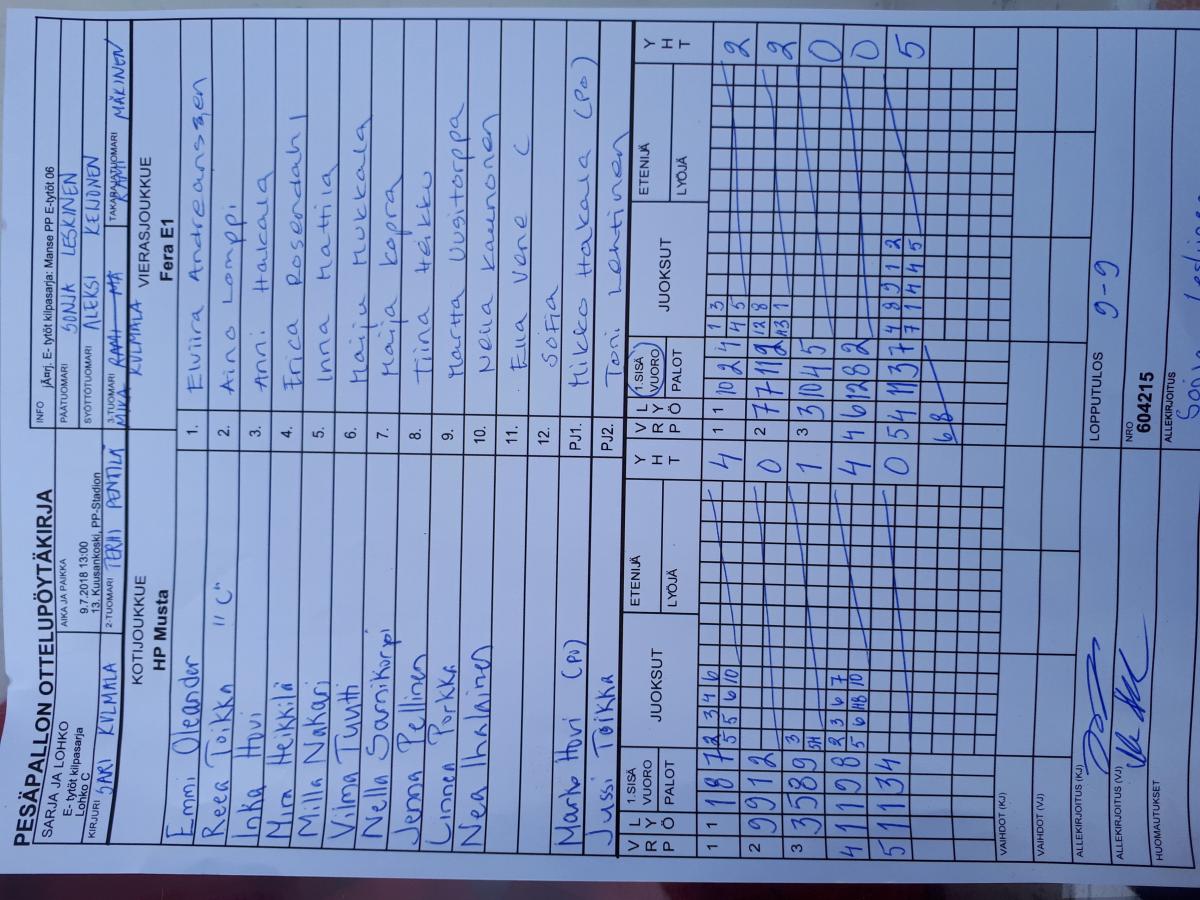 PESÄPALLON OTTELUPÖYTÄKIRJA
SARJA JA LOHKO
E- tytöt kilpasarja
Lohko C
AIKA JA PAIKKA
9.7.2018 13:00
13. Kuusankoski, PP-Stadion
INFO jÃ¤rj. E- tytöt kilpasarja: Manse PP E-tytöt 06
PÄÄTUOMARI SONJA LESKINEN
SYÖTTÖTUOMARI ALEKSI KEIJONEN
KIRJURI SARI KULMALA
2-TUOMARI TERHI PENTTILÄ
3-TUOMARI MIKA KULMALA
TAKARAJATUOMARI RAMI MÄKINEN
KOTIJOUKKUE
HP Musta
VIERASJOUKKUE
Fera E1
Emmi Oleander
1. Elviira Andreanssen
Reea Toikka "C"
2. Aino Lamppi
Inka Hovi
3. Anni Hakala
Mira Heikkilä
4. Erica Rosendahl
Milla Nakari
5. Inna Mattila
Vilma Tuutti
6. Maiju Mukkala
Nella Sarnikorpi
7. Maija Kopra
Jenna Pellinen
8. Tiina Heikku
Linnea Porkka
9. Martta Uusitorppa
Nea Ihalainen
10. Neila Kaunonen
11. Ella Vene C
12. Sofia
Marko Hovi (PO)
PJ1. Mikko Hakala (PO)
Jussi Toikka
PJ2. Toni Lehtinen
VRP LYÖ 1.SISÄ VUORO PALOT JUOKSUT ETENIJÄ LYÖJÄ YHT
VRP LYÖ 1.SISÄ VUORO PALOT JUOKSUT ETENIJÄ LYÖJÄ YHT
1 1 1 8 7 2 3 4 6 4
5 5 6 10
1 1 10 2 4 1 3 2
4 5
2 9 9 1 2 0
2 7 7 11 12 12 8 2
1
3 3 5 8 9 3 1
3 3 10 4 5 0
4 1 1 9 8 2 3 6 7 4
5 6 10
4 6 12 8 2 0
5 1 1 3 4 0
5 4 11 3 7 4 8 9 1 2 5
7 1 4 4 5
6 8
VAIHDOT (KJ)
VAIHDOT (VJ)
ALLEKIRJOITUS (KJ)
LOPPUTULOS 9-9
ALLEKIRJOITUS (VJ)
NRO
604215
HUOMAUTUKSET
ALLEKIRJOITUS